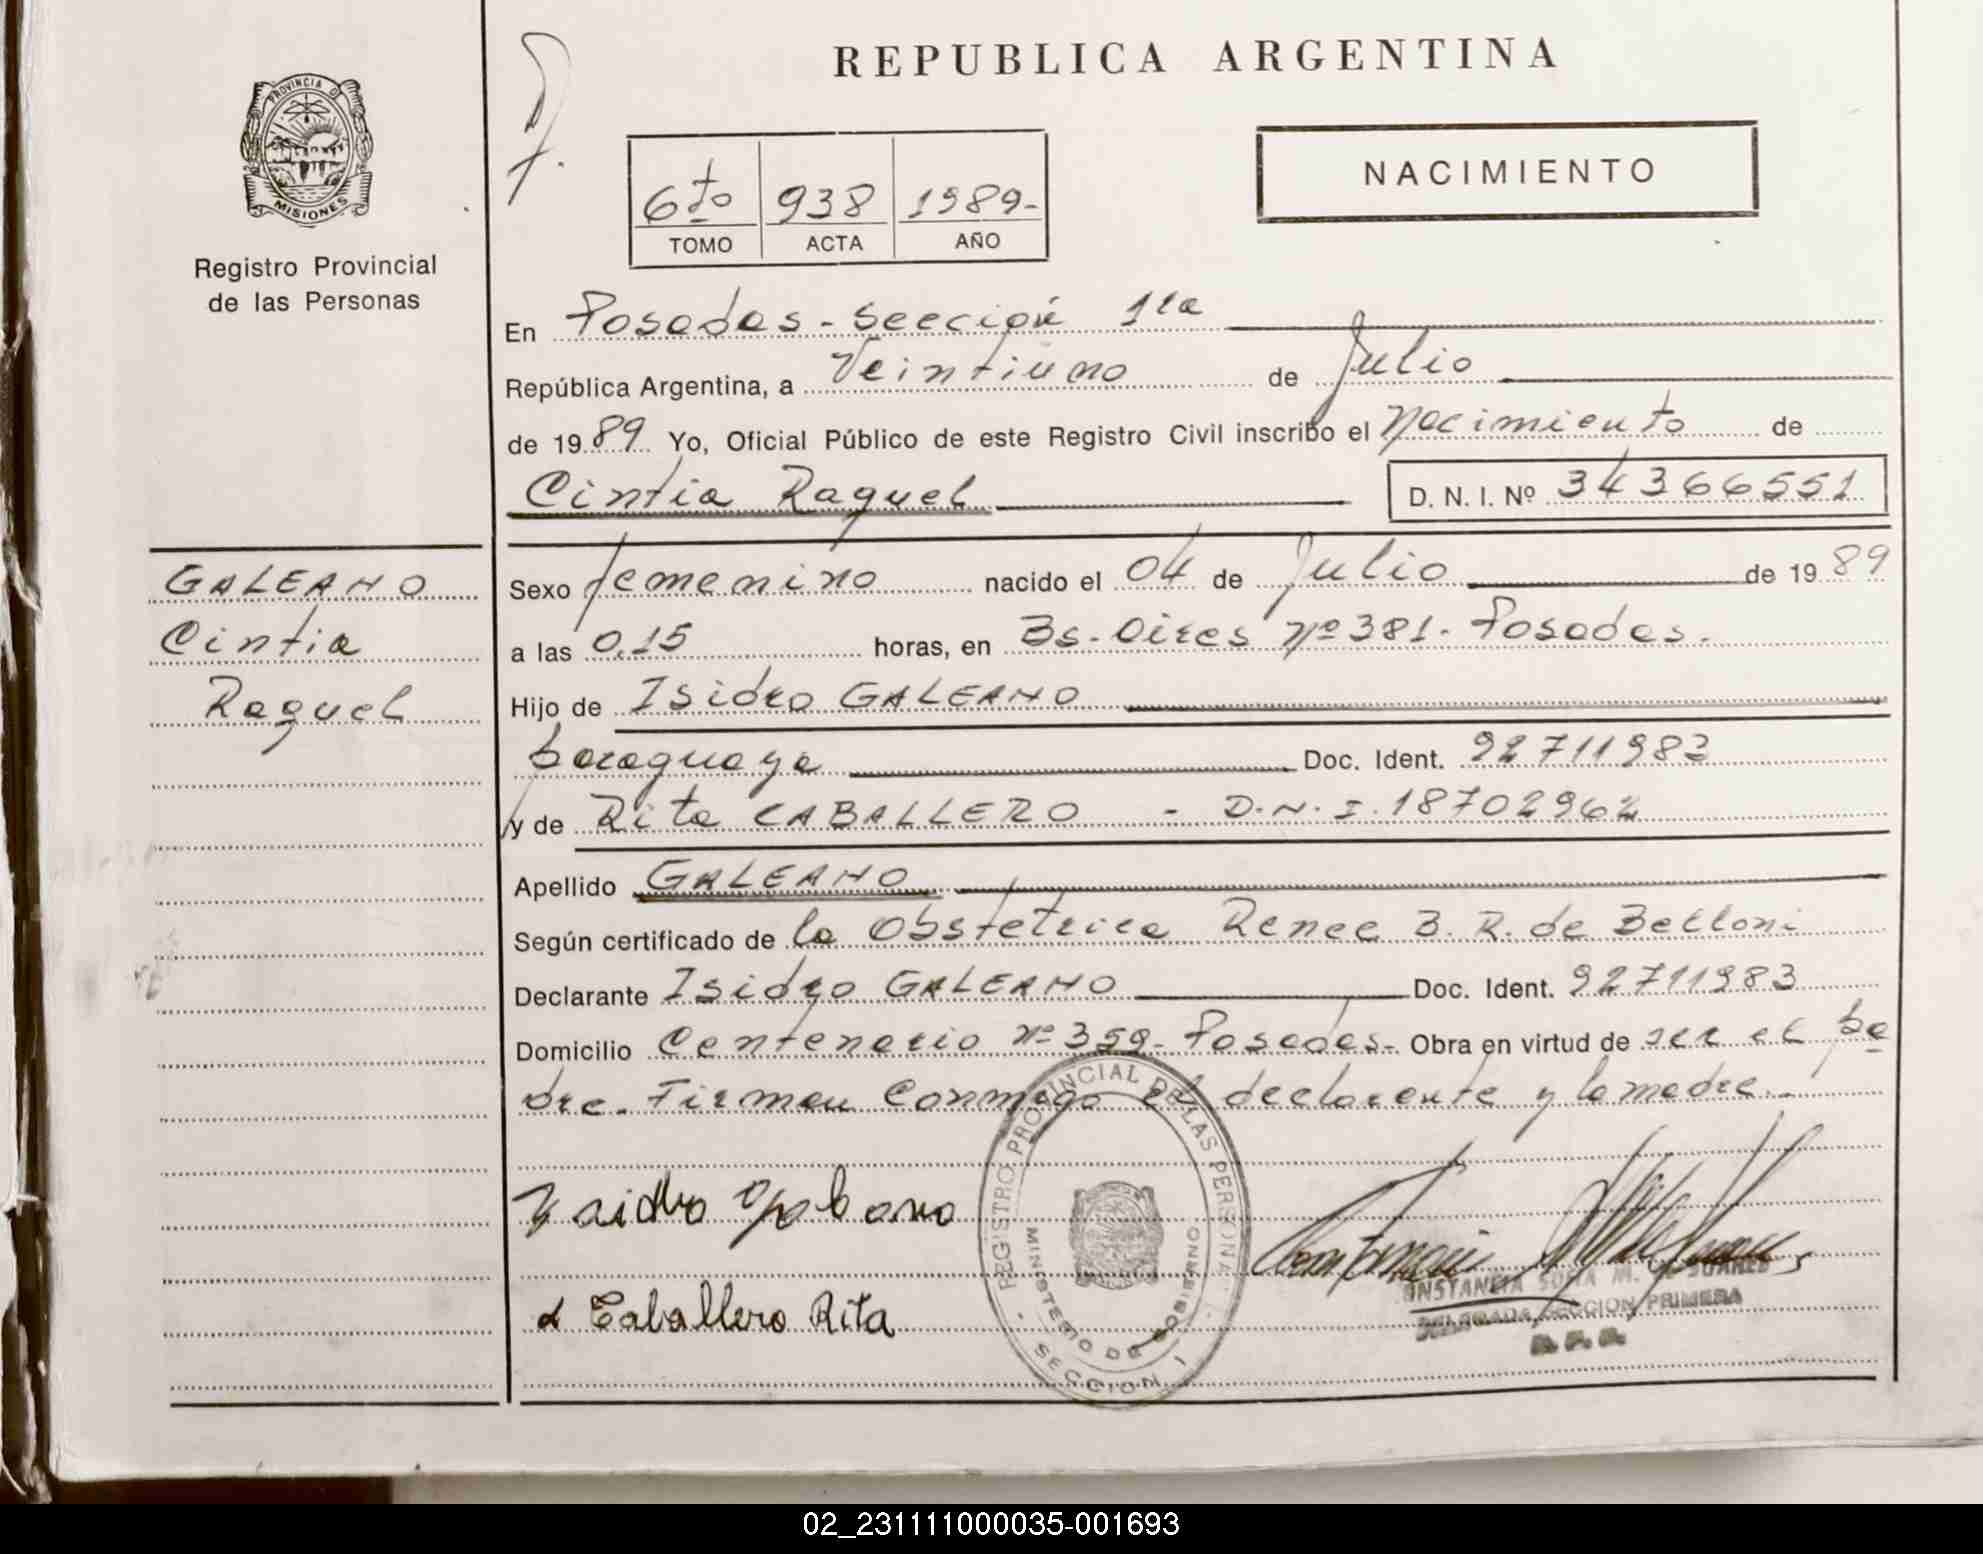 REPUBLICA ARGENTINA
PROVINCIA D
MISIONES
Registro Provincial
de las Personas
6to 938 1989-
TOMO ACTA AÑO
NACIMIENTO
En Posadas - Sección 1ra
República Argentina, a Veintiuno de Julio
de 1989 Yo, Oficial Público de este Registro Civil inscribo el Nacimiento de
Cintia Raquel D. N. I. Nº 34366551
GALEANO
Cintia
Raquel
Sexo femenino nacido el 04 de Julio de 1989
a las 0,15 horas, en Bs. Aires Nº 381. Posadas.
Hijo de Isidro GALEANO
paraguaya Doc. Ident. 92711983
y de Rita CABALLERO - D.N.I. 18702962
Apellido GALEANO
Según certificado de la Obstetrica Renee B. R. de Belloni
Declarante Isidro GALEANO Doc. Ident. 92711983
Domicilio Centenario Nº 359- Posadas- Obra en virtud de ser el pa
dre. Firman Conmigo el declarante y la madre.-
Ysidro Galeano
Caballero Rita
REGISTRO PROVINCIAL DE LAS PERSONAS
MINISTERIO DE GOBIERNO
- SECCION I -
CONSTANCIA SOFIA M. DE SUAREZ
DELEGADA SECCION PRIMERA
02_231111000035-001693